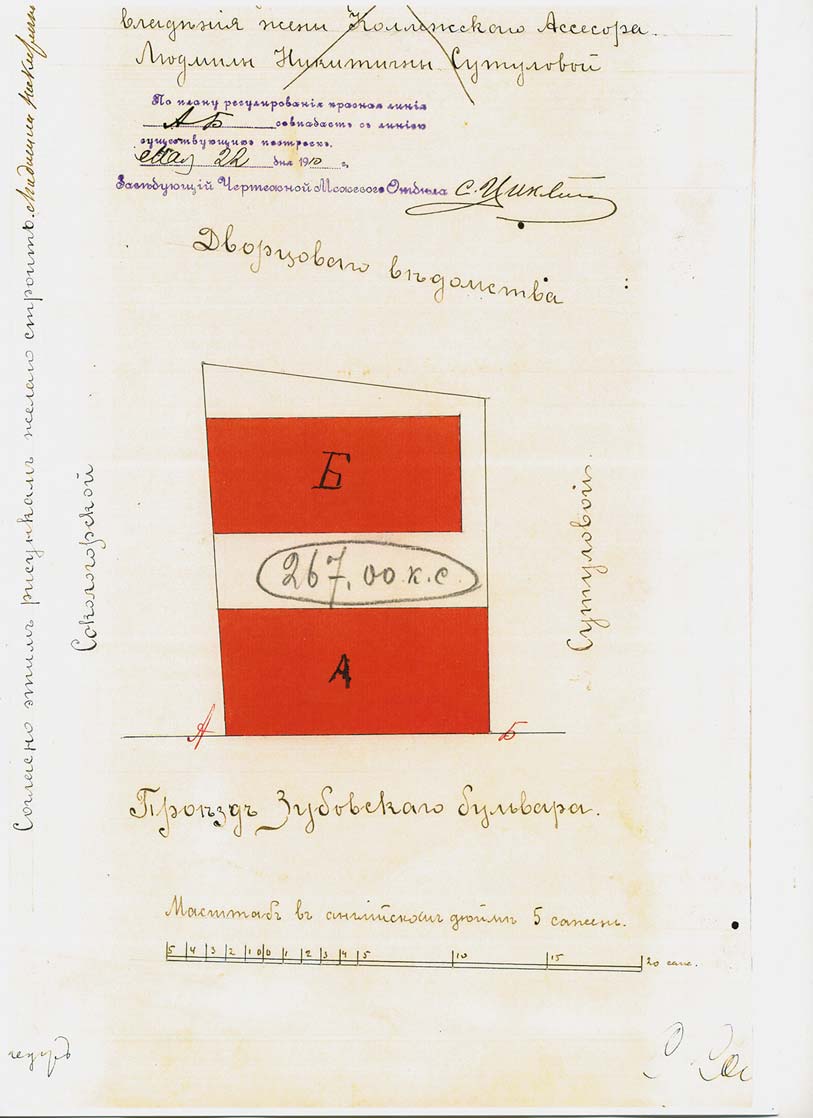 владѣнія жены Коллежскаго Ассесора.
Людмилы Никитичны Сутуловой
По плану регулированія красная линія
АБ совпадаетъ съ линіею
существующихъ построекъ.
Мая 22 дня 1910 г.
Завѣдующій Чертежной Межевого Отдѣла
Дворцоваго вѣдомства
Согласно этимъ рисункамъ желаю строить. Людмила
Сокологорской
Сутуловой.
Б
267,00 к.с.
А
А
Б
Проѣздъ Зубовскаго бульвара.
Масштабъ въ англійскомъ дюймѣ 5 сажень.
5 4 3 2 1 0 0 1 2 3 4 5 10 15 20 саж.